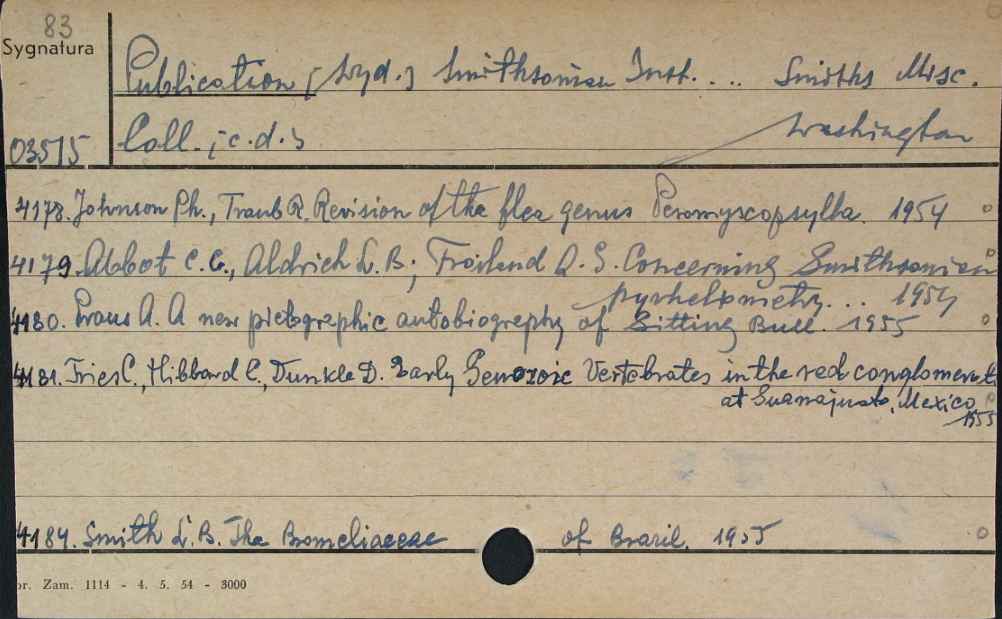 83
Sygnatura
Publication [wyd.] Smithsonian Inst. ... Smiths Misc.
03515 Coll. ; c.d. Washington
4178. Johnson Ph., Traub R. Revision of the flea genus Peromyscopsylla. 1954
4179. Abbot C.G., Aldrich L.B., Froiland A.G. Concerning Smithsonian
pyrheliometry... 1954
4180. Praus A. A new pictographic autobiography of Sitting Bull. 1955
4181. Fries C., Hibbard C., Dunkle D. Early Cenozoic Vertebrates in the red conglomerate
at Guanajuato, Mexico
1955
4184. Smith L.B. The Bromeliaceae of Brazil. 1955
or. Zam. 1114 - 4. 5. 54 - 3000